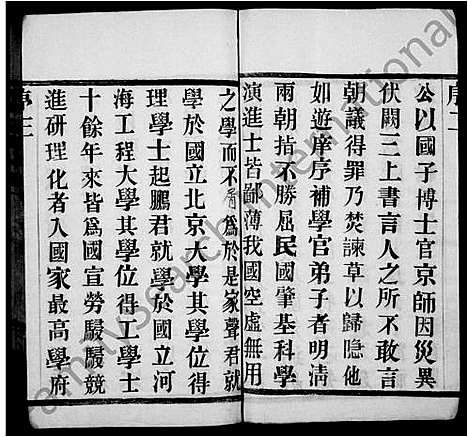 序二
公以國子博士官京師因災異
伏闕三上書言人之所不敢言
朝議得罪乃焚諫草以歸隐他
如遊庠序補學官弟子者明清
兩朝指不勝屈民國肇基科學
演進士皆鄙薄我國空虛無用
之學而不屑爲於是家聲君就
學於國立北京大學其學位得
理學士起鵬君就學於國立河
海工程大學其學位得工學士
十餘年來皆爲國宣勞駸駸競
進研理化者入國家最高學府
序三